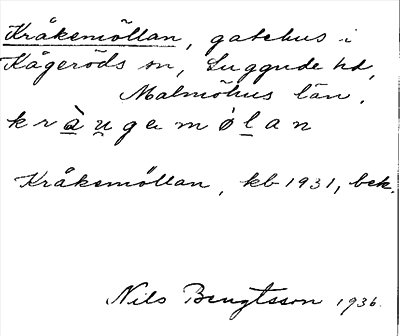 Kråkemöllan, gatehus i
Kågeröds sn, Luggude hd,
Malmöhus län.
kràu̲gamøl̲an
Kråkemöllan, kb 1931, bek.
Nils Bengtsson 1936.